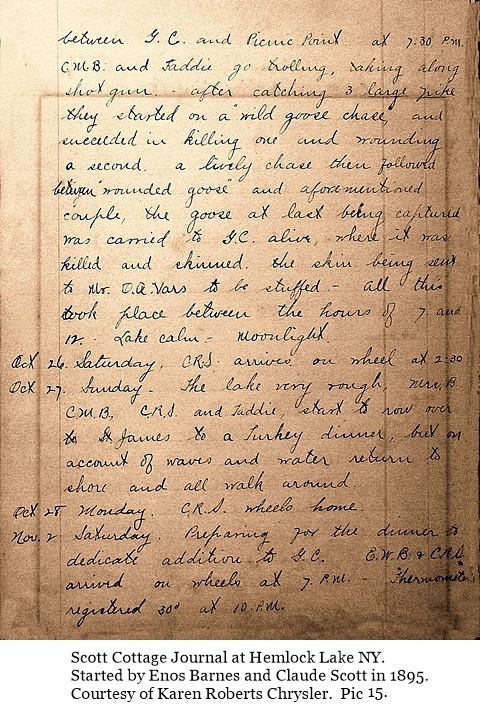 between G.C. and Picnic Point. at 7:30 P.M.
C.M.B. and Taddie go trolling, taking along
shot gun. - after catching 3 large pike
they started on a "wild goose chase," and
succeeded in killing one and wounding
a second. a lively chase then followed
between "wounded goose" and aforementioned
couple, the goose at last being captured
was carried to G.C. alive, where it was
killed and skinned. the skin being sent
to Mr. O.A. Vars to be stuffed. - all this
took place between the hours of 7. and
12. - Lake calm - Moonlight.
Oct 26. Saturday. C.R.S. arrives on wheel at 2:30
Oct 27. Sunday. The lake very rough, Mrs. B.
C.M.B., C.R.S. and Taddie, start to row over
to St James to a Turkey dinner, but on
account of waves and water return to
shore and all walk around.
Oct 28 Monday. C.R.S. wheels home.
Nov. 2 Saturday. Preparing for the dinner to
dedicate addition to G.C. E.W.B. & C.R.S.
arrived on wheels at 7. P.M. - Thermometer
registered 30° at 10. P.M.
Scott Cottage Journal at Hemlock Lake NY.
Started by Enos Barnes and Claude Scott in 1895.
Courtesy of Karen Roberts Chrysler. Pic 15.